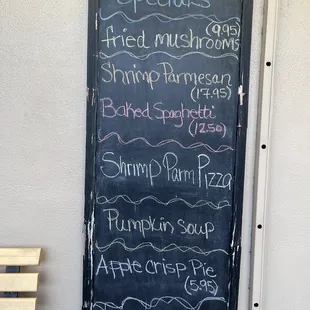 Specials
(9.95)
fried mushrooms
Shrimp Parmesan
(17.95)
Baked Spaghetti
(12.50)
Shrimp Parm Pizza
Pumpkin soup
Apple crisp Pie
(5.95)